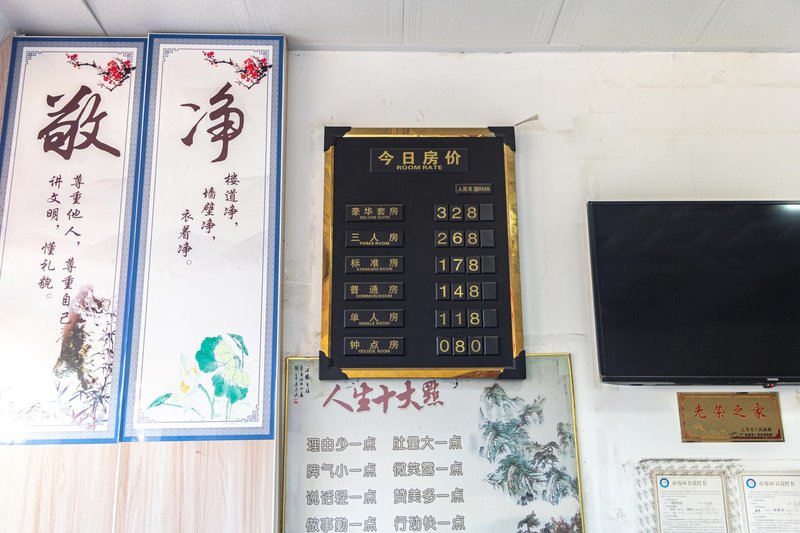 敬
尊重他人，尊重自己
讲文明，懂礼貌。
净
楼道净，
墙壁净，
衣着净。
今日房价
ROOM RATE
人民币 圆RMB
豪华套房 328
DELUXE SUITE
三人房 268
THREE ROOM
标准房 178
STANDARD ROOM
普通房 148
COMMON ROOM
单人房 118
SINGLE ROOM
钟点房 080
OCLOCK ROOM
人生十大點
理由少一点 肚量大一点
脾气小一点 微笑露一点
说话轻一点 赞美多一点
做事勤一点 行动快一点
光荣之家